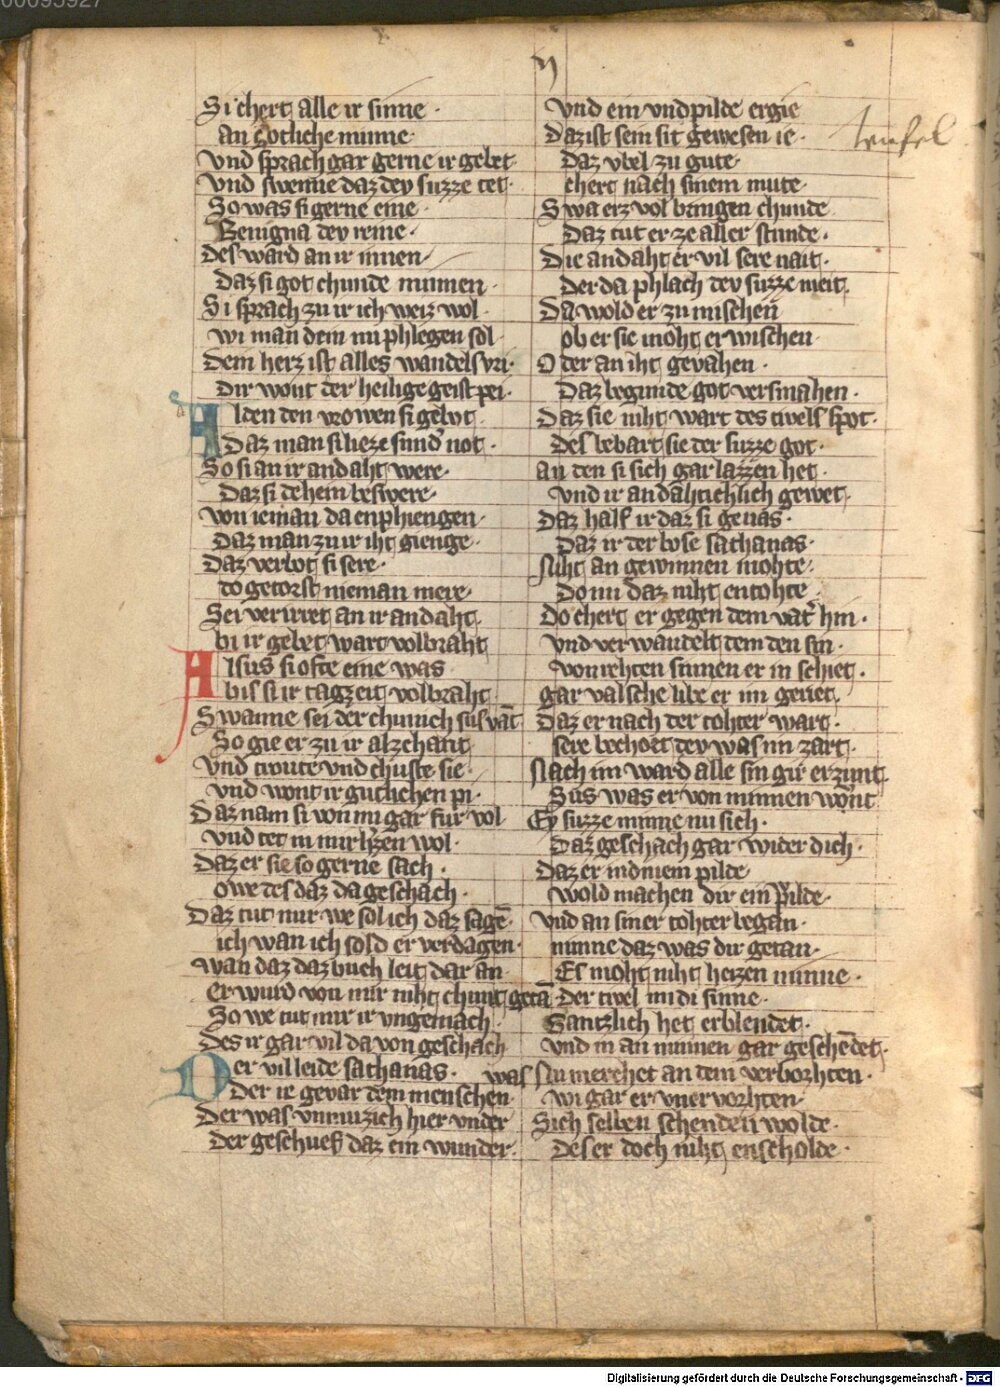 00095927
n
Si chert alle ir sinne ·
an gotliche minne ·
Vnd sprach gar gerne ir gebet ·
Vnd swenne daz dev suzze tet ·
So was si gerne eine ·
Benigna dev reine ·
Des ward an ir innen
Daz si got chunde minnen ·
Si sprach zu ir ich weiz wol ·
wi man dem im phlegen sol ·
Dem herz ist alles wandels vri ·
Dir wont der heilige geist pei ·
Alden den vrowen si gebot
Daz man si lieze sund' not ·
So si an ir andaht were ·
Daz si dehein beswere ·
von ieman da enphiengen ·
Daz man zu ir iht gienge ·
Daz verbot si sere ·
do getorst nieman mere ·
Sei verirret an ir andaht
bi ir gebet wart volbraht
Alsus si ofte eine was
bis si ir tagzeit volbraht
Swanne sei der chunich sus vāt
So gie er zu ir alzehant
Vnd troute vnd chuste sie ·
vnd wont ir gutlichen pi ·
Daz nam si von im gar fur vol
vnd tet in nur lizen wol ·
Daz er sie so gerne sach ·
owe des daz da geschach ·
Daz tut mir we sol ich daz sagē
ich wan ich sold er verdagen ·
wan daz daz buch leit dar an
Er wurd von mir niht chunt getā
So we tut mir ir vngemach
Des ir gar vil da von geschach
Der vil leide sathanas · was
Der ie gevar dem menschen
Der was vnmuzich hier vnder
Der geschuef daz ein wunder ·
Vnd ein vndpilde ergie
Daz ist sein sit gewesen ie ·
teufel
Daz vbel zu gute ·
chert nach sinem mute ·
Swa erz vol bringen chunde
Daz tut er ze aller stunde ·
Die andaht er vil sere nait ·
Der da phlach dev suzze meit
Da wold er zu mischen
ob er sie moht erwischen ·
Oder an iht gevahen ·
Daz begunde got versmahen ·
Daz sie niht wart des tivels spot ·
Des bebart sie der suzze got ·
an den si sich gar lazzen het ·
Vnd ir andahtichlich gewet
Daz half ir daz si genas ·
Daz ir der bose sathanas ·
Niht an gewinnen mohte ·
Do im daz niht entohte
Do chert er gegen dem vat' hin ·
vnd verwandelt dem den sin ·
von rehten sinnen er in schiet ·
gar valsche libe er im geriet
Daz er nach der tohter wart ·
sere bechort dev was im zart
Nach im ward alle sin gir erzunt
Sus was er von minnen wont
Ey suzze minne nu sich ·
Daz geschach gar wider dich ·
Daz er ind niem pilde
wold machen dir ein pilde ·
Vnd an siner tohter began ·
minne daz was dir getan ·
Es moht niht heizen minne ·
Der tivel im di sinne ·
Gantzlich het erblendet ·
Vnd in an minnen gar geschēdet
Nu merchet an dem verworhten ·
wi gar er vnervorhten ·
Sich selben schenden wolde ·
Des er doch niht enscholde ·
Digitalisierung gefördert durch die Deutsche Forschungsgemeinschaft - DFG